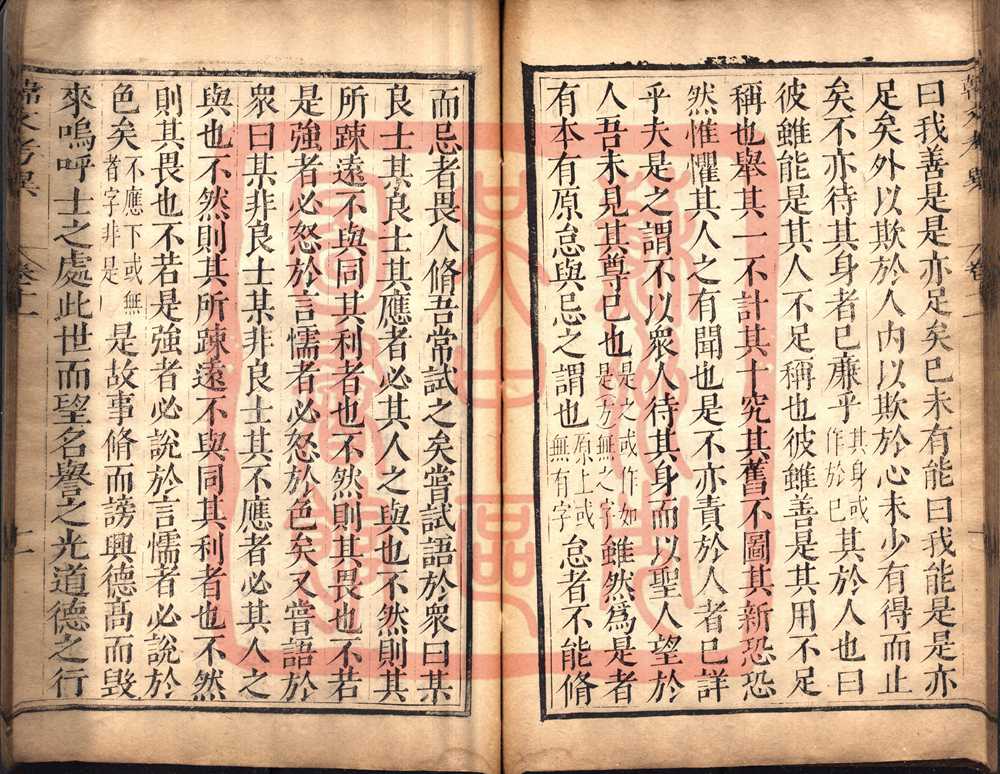 曰我善是是亦足矣已未有能曰我能是是亦
足矣外以欺於人内以欺於心未少有得而止
矣不亦待其身者已亷乎其身或作於已其於人也曰
彼雖能是其人不足稱也彼雖善是其用不足
稱也舉其一不計其十究其舊不圖其新恐恐
然惟懼其人之有聞也是不亦責於人者已詳
乎夫是之謂不以衆人待其身而以聖人望於
人吾未見其尊已也是之或作如是方無之字雖然爲是者
有本有原怠與忌之謂也原上或無有字怠者不能脩
而忌者畏人脩吾常試之矣嘗試語於衆曰某
良士某良士其應者必其人之與也不然則其
所踈遠不與同其利者也不然則其畏也不若
是強者必怒於言懦者必怒於色矣又嘗語於
衆曰某非良士某非良士其不應者必其人之
與也不然則其所踈遠不與同其利者也不然
則其畏也不若是強者必說於言懦者必說於
色矣不應下或無者字非是是故事脩而謗興德高而毁
來嗚呼士之處此世而望名譽之光道德之行
卷十一